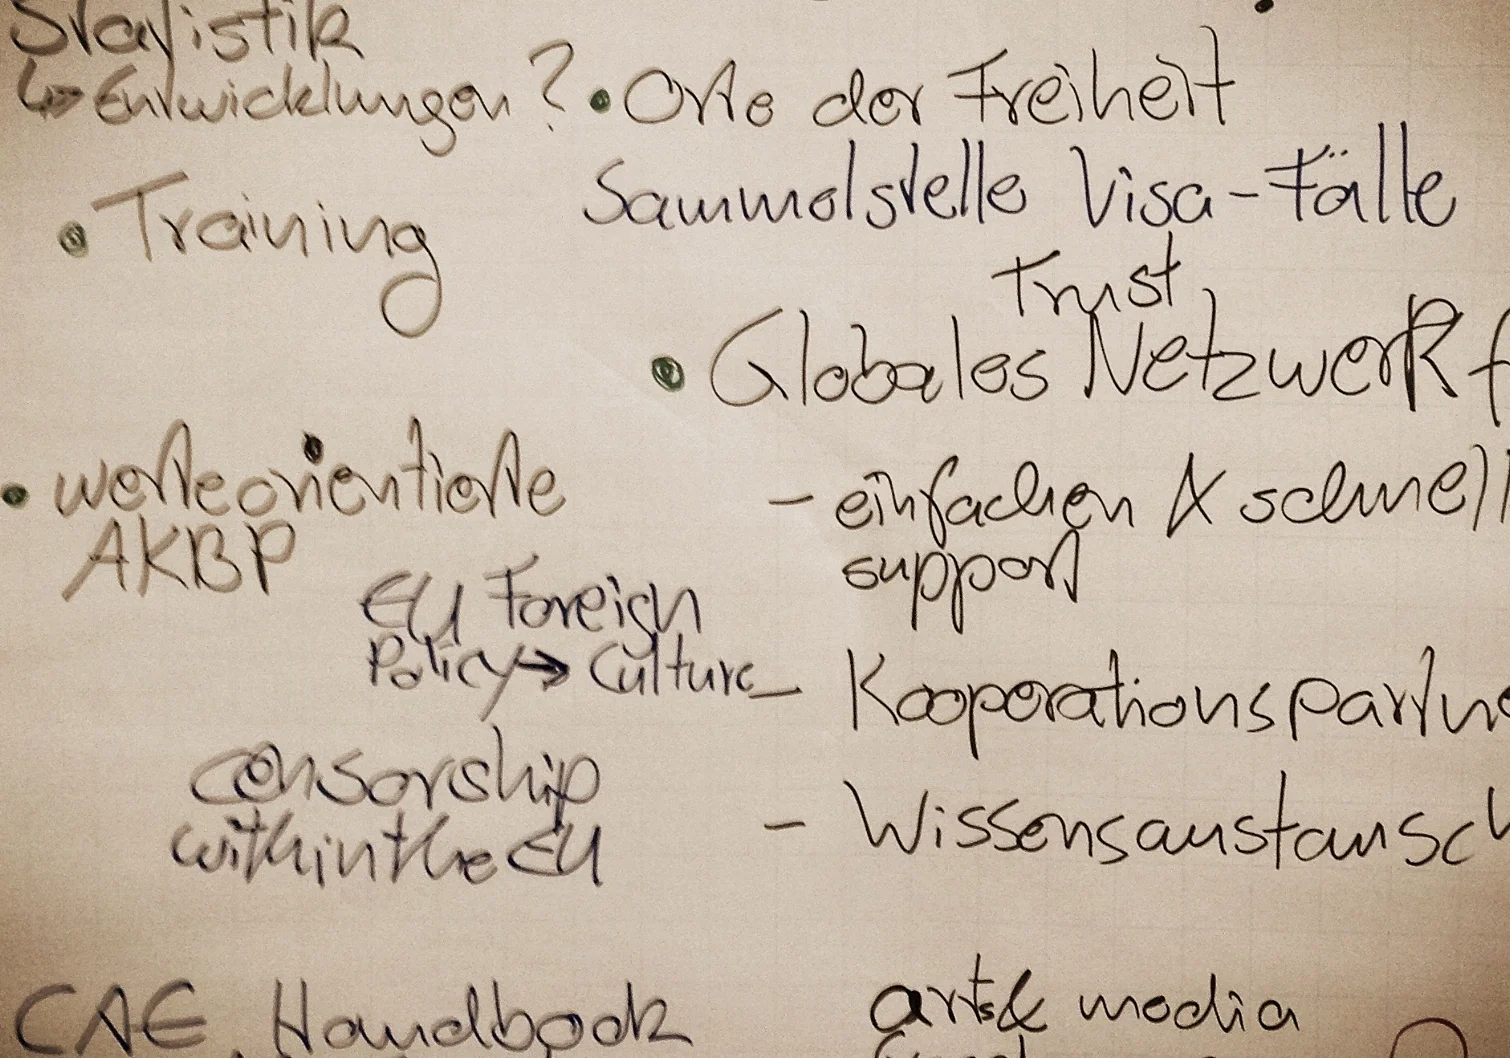 Statistik
↳ Entwicklungen ?
• Training
• werteorientierte
AKBP
EU Foreign
Policy → Culture
censorship
within the EU
CAE Handbook
• Orte der Freiheit
Sammelstelle Visa-Fälle
Trust
• Globales Netzwerk f
- einfachen & schnell
support
- Kooperationspartne
- Wissensaustausch
arts & media